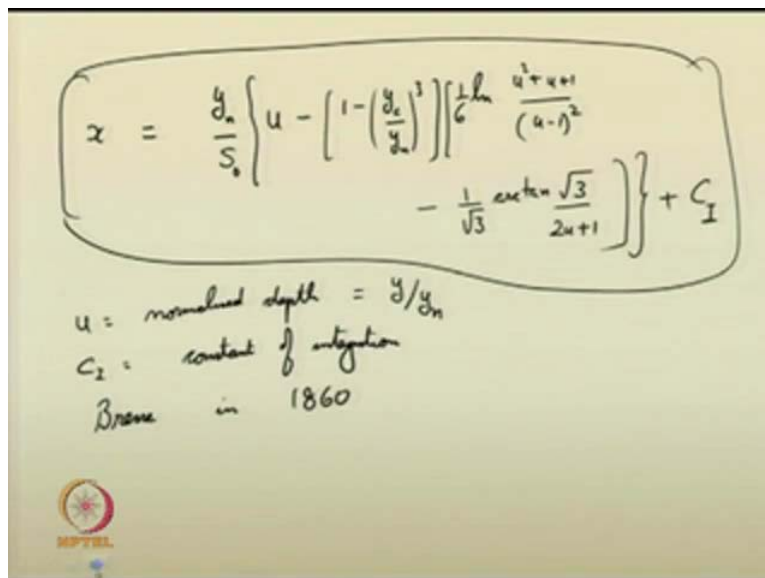 x = y_n/S_0 { u - [ 1 - (y_c/y_n)^3 ] [ 1/6 ln (u^2+u+1)/(u-1)^2
- 1/√3 arctan √3/(2u+1) ] } + C_I
u = normalised depth = y/y_n
C_I = constant of integration
Bresse in 1860
NPTEL